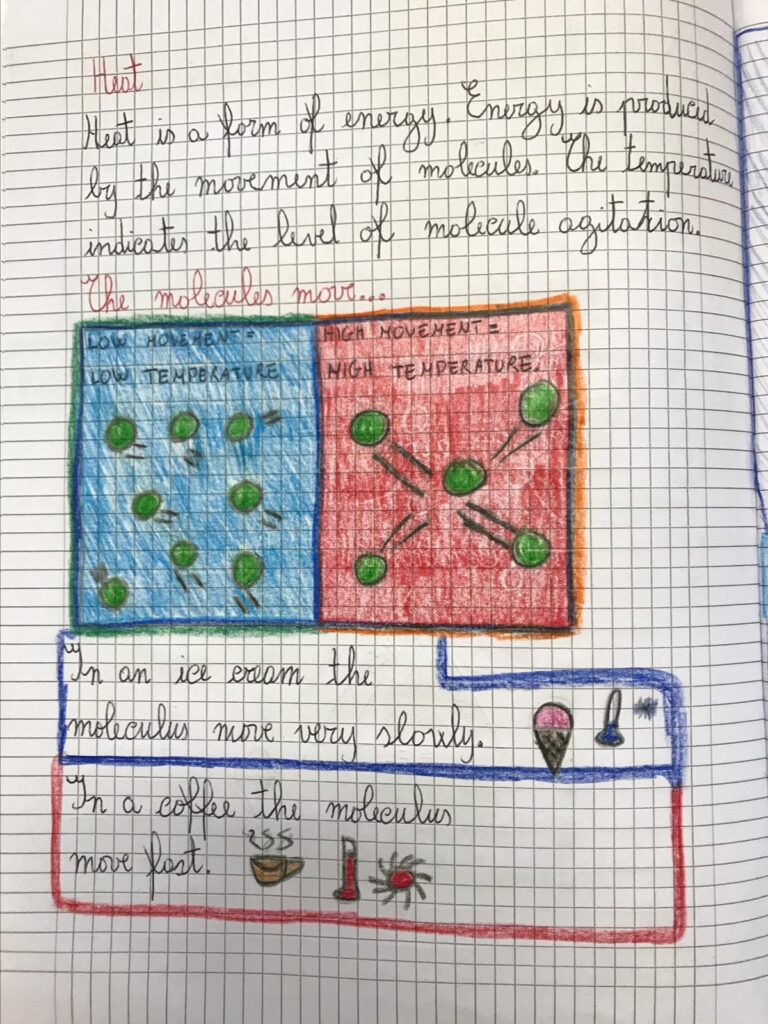 Heat
Heat is a form of energy. Energy is produced
by the movement of molecules. The temperature
indicates the level of molecule agitation.
The molecules move...
LOW MOVEMENT =
LOW TEMPERATURE
HIGH MOVEMENT =
HIGH TEMPERATURE.
In an ice cream the
moleculus move very slowly.
In a coffee the moleculus
move fast.